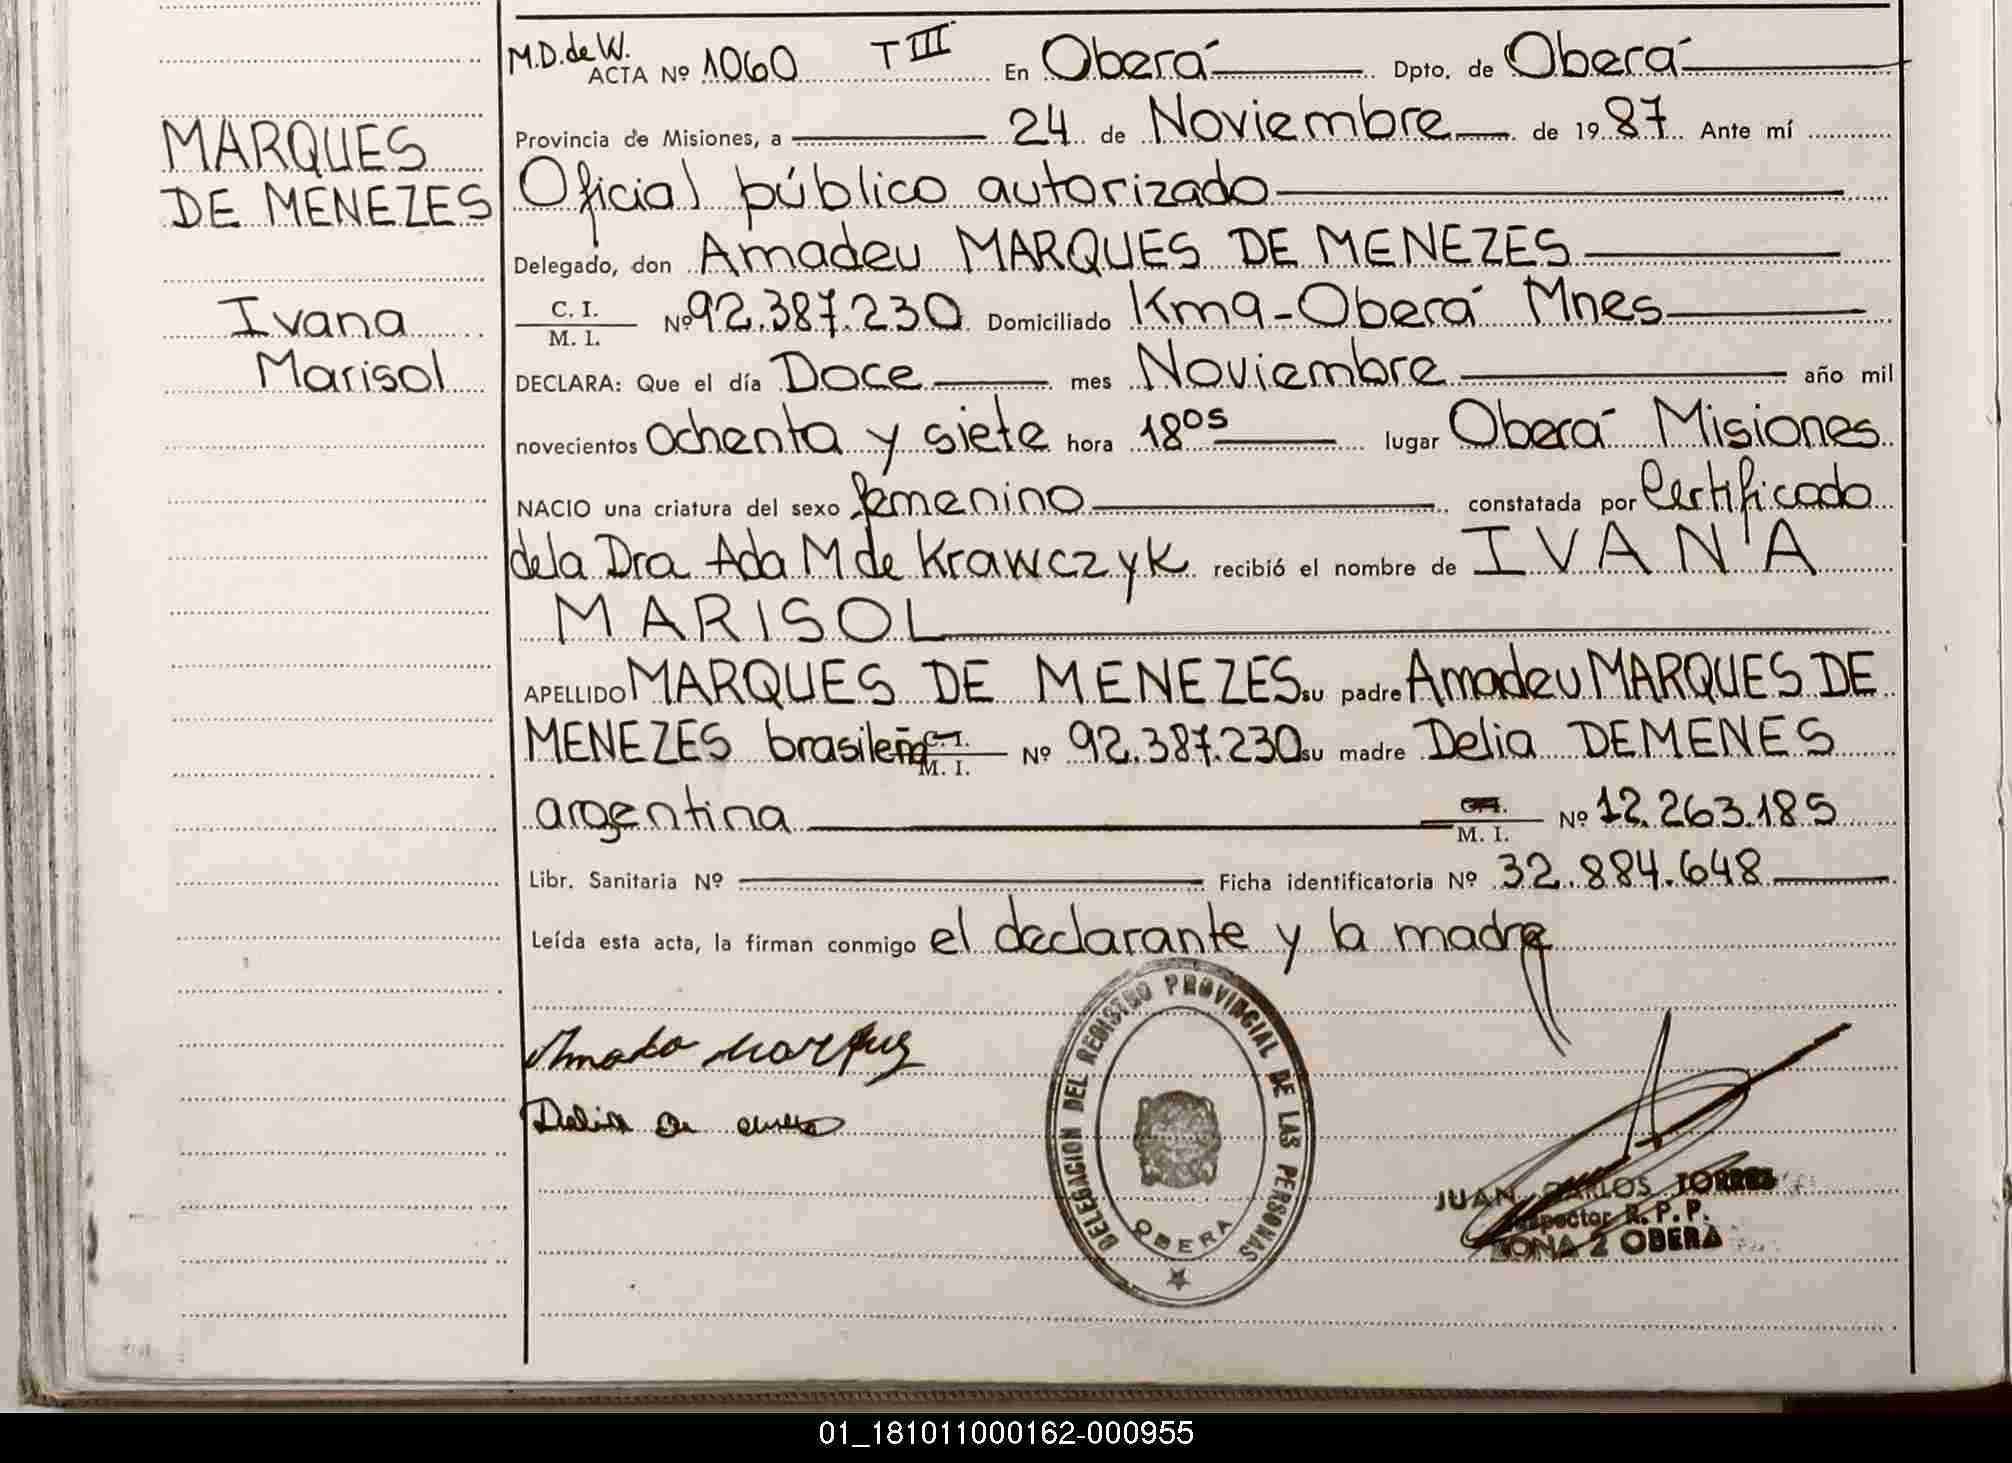 M.D. de W.
ACTA Nº 1060 T III En Oberá Dpto. de Oberá
Provincia de Misiones, a 24 de Noviembre de 1987 Ante mí
Oficial público autorizado
Delegado, don Amadeu MARQUES DE MENEZES
C. I.
M. I.
Nº 92.387.230 Domiciliado Km9-Oberá Mnes
DECLARA: Que el día Doce mes Noviembre año mil
novecientos ochenta y siete hora 18⁰⁵ lugar Oberá Misiones
NACIO una criatura del sexo femenino constatada por Certificado
de la Dra Ada M de Krawczyk recibió el nombre de IVANA
MARISOL
APELLIDO MARQUES DE MENEZES su padre Amadeu MARQUES DE
MENEZES brasileña C. I. M. I. Nº 92.387.230 su madre Delia DEMENES
argentina M. I. Nº 12.263.185
Libr. Sanitaria Nº Ficha identificatoria Nº 32.884.648
Leída esta acta, la firman conmigo el declarante y la madre
MARQUES
DE MENEZES
Ivana
Marisol
DELEGACION DEL REGISTRO PROVINCIAL DE LAS PERSONAS
OBERA
JUAN CARLOS TORRES
Inspector R. P. P.
ZONA 2 OBERA
01_181011000162-000955